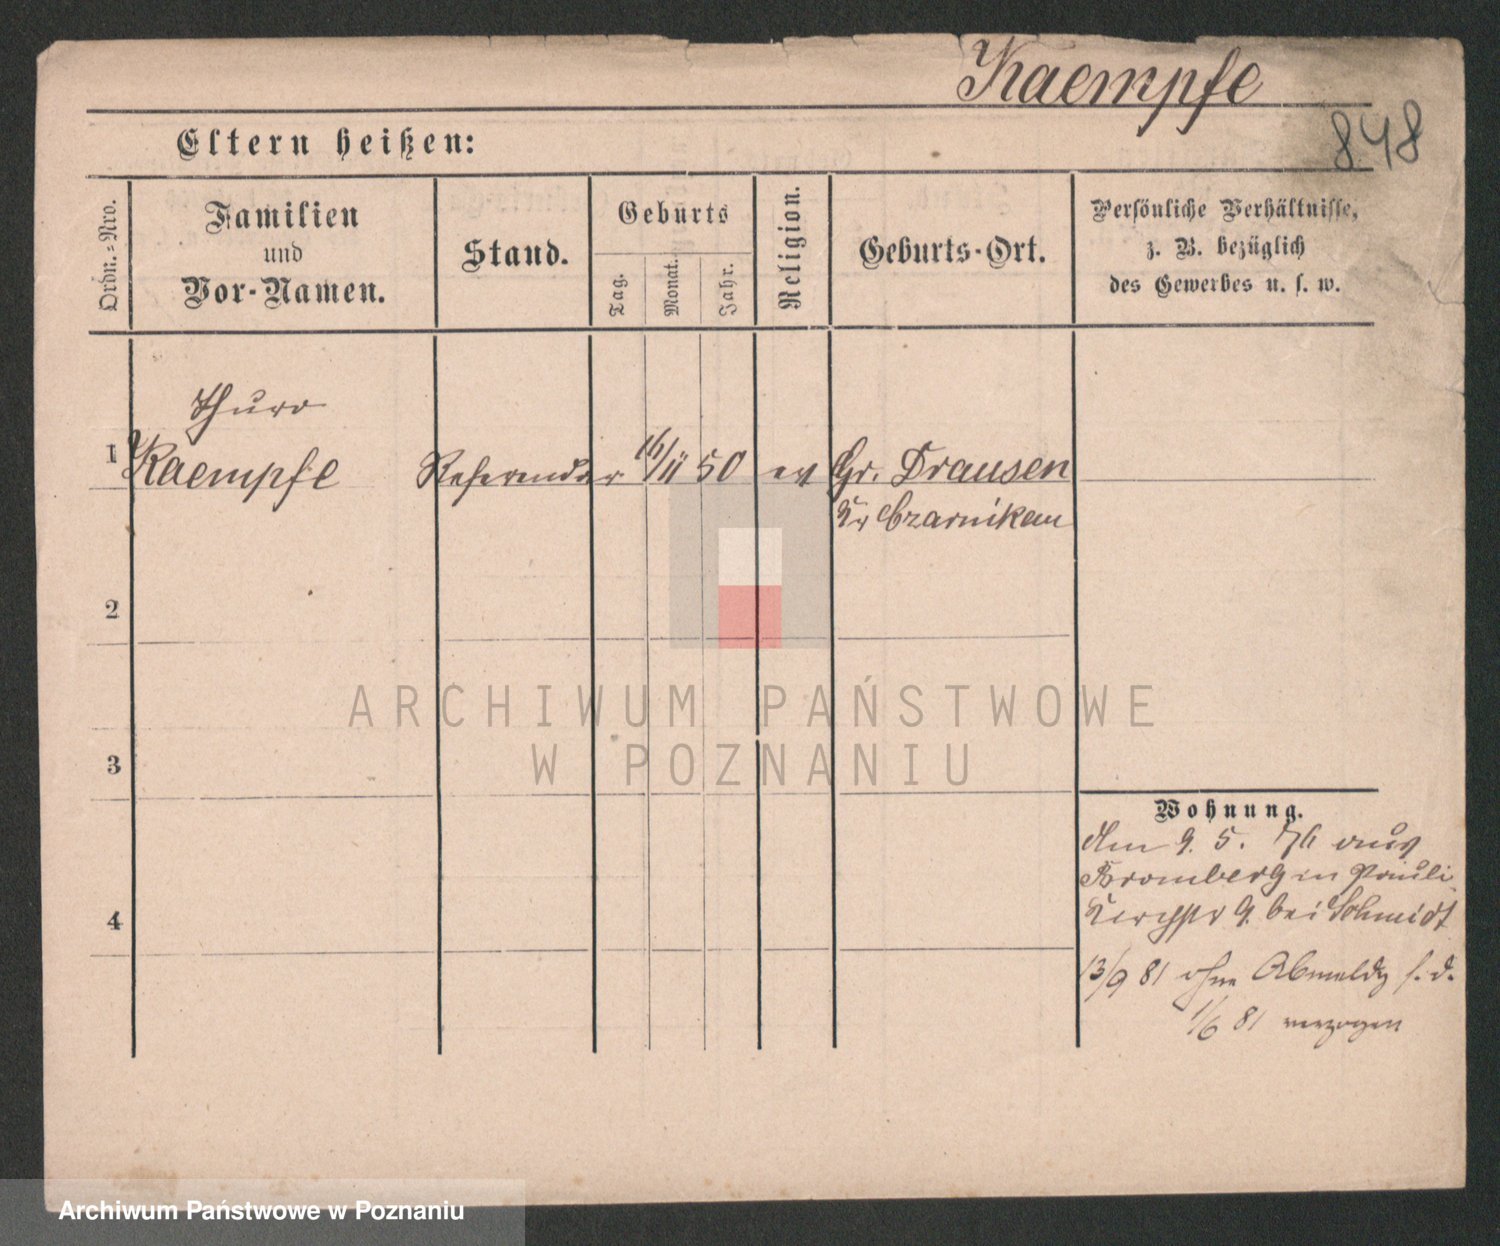 Kaempfe
848
Eltern heißen:
Ordn.-Nro.
Familien
und
Vor-Namen.
Stand.
Geburts
Tag.
Monat.
Jahr.
Religion.
Geburts-Ort.
Persönliche Verhältnisse,
z. B. bezüglich
des Gewerbes u. s. w.
Thuro
1 Kaempfe Referendar 16/11 50 ev Gr. Drausen
Kr Czarnikau
2
3
4
Wohnung.
den 9. 5. 76 aus
Bromberg in Pauli
Kirchstr 9. bei Schmidt
13/9 81 ohne Abmeldg s. d.
1/6 81 verzogen
ARCHIWUM PAŃSTWOWE
W POZNANIU
Archiwum Państwowe w Poznaniu